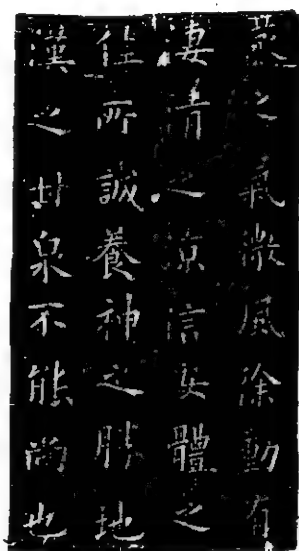 蒸之氣微風徐動有
淒清之涼信安體之
佳所誠養神之勝地
漢之甘泉不能尚也